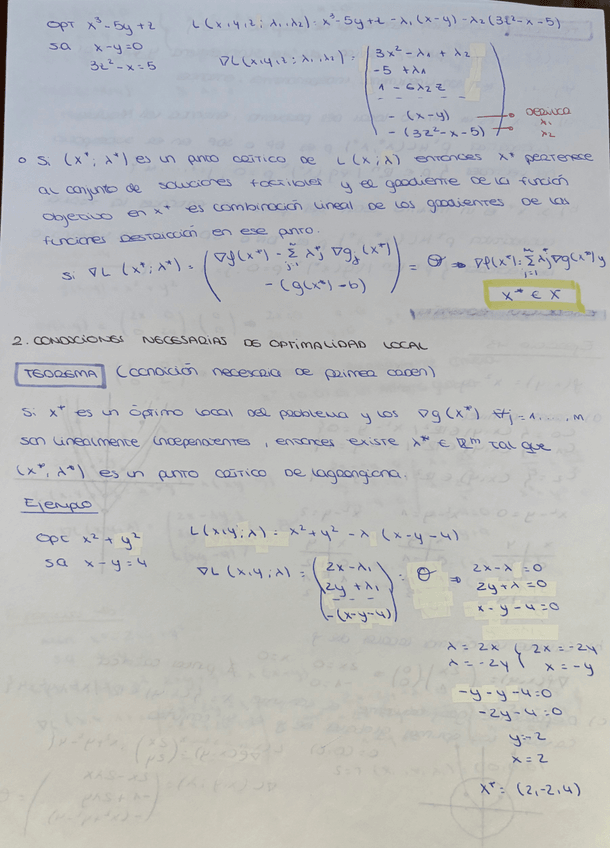 OPT x³-5y+z L(x,y,z; λ₁,λ₂): x³-5y+z - λ₁(x-y) - λ₂(3z²-x-5)
sa x-y=0
3z²-x=5
∇L(x,y,z; λ₁,λ₂): ( 3x² - λ₁ + λ₂
-5 + λ₁
1 - 6λ₂z
- (x-y) → DERIVADA λ₁
- (3z²-x-5) ) → λ₂
o Si (x*; λ*) es un punto crítico de L(x;λ) entonces x* pertenece
al conjunto de soluciones factibles y el gradiente de la función
objetivo en x* es combinación lineal de los gradientes de las
funciones restricción en ese punto.
Si ∇L(x*;λ*) = ( ∇f(x*) - Σ λ*j ∇gj(x*) = θ ⇒ ∇f(x*) = Σ λ*j ∇g(x*) y
- (g(x*) - b) ) x* ∈ X
2. CONDICIONES NECESARIAS DE OPTIMALIDAD LOCAL
TEOREMA (condición necesaria de primer orden)
Si x* es un óptimo local del problema y los ∇g(x*) ∀j=1,...,m
son linealmente independientes, entonces existe λ* ∈ ℝᵐ tal que
(x*, λ*) es un punto crítico de lagrangiana.
Ejemplo
OPT x² + y² L(x,y;λ) = x²+y² - λ (x-y-4)
sa x-y=4
∇L(x,y;λ) = ( 2x-λ₁ = θ ⇒ 2x-λ=0
2y+λ₁ 2y+λ=0
-(x-y-4) ) x-y-4=0
λ=2x 2x=-2y
λ=-2y x=-y
-y-y-4=0
-2y-4=0
y=-2
x=2
x*=(2,-2,4)